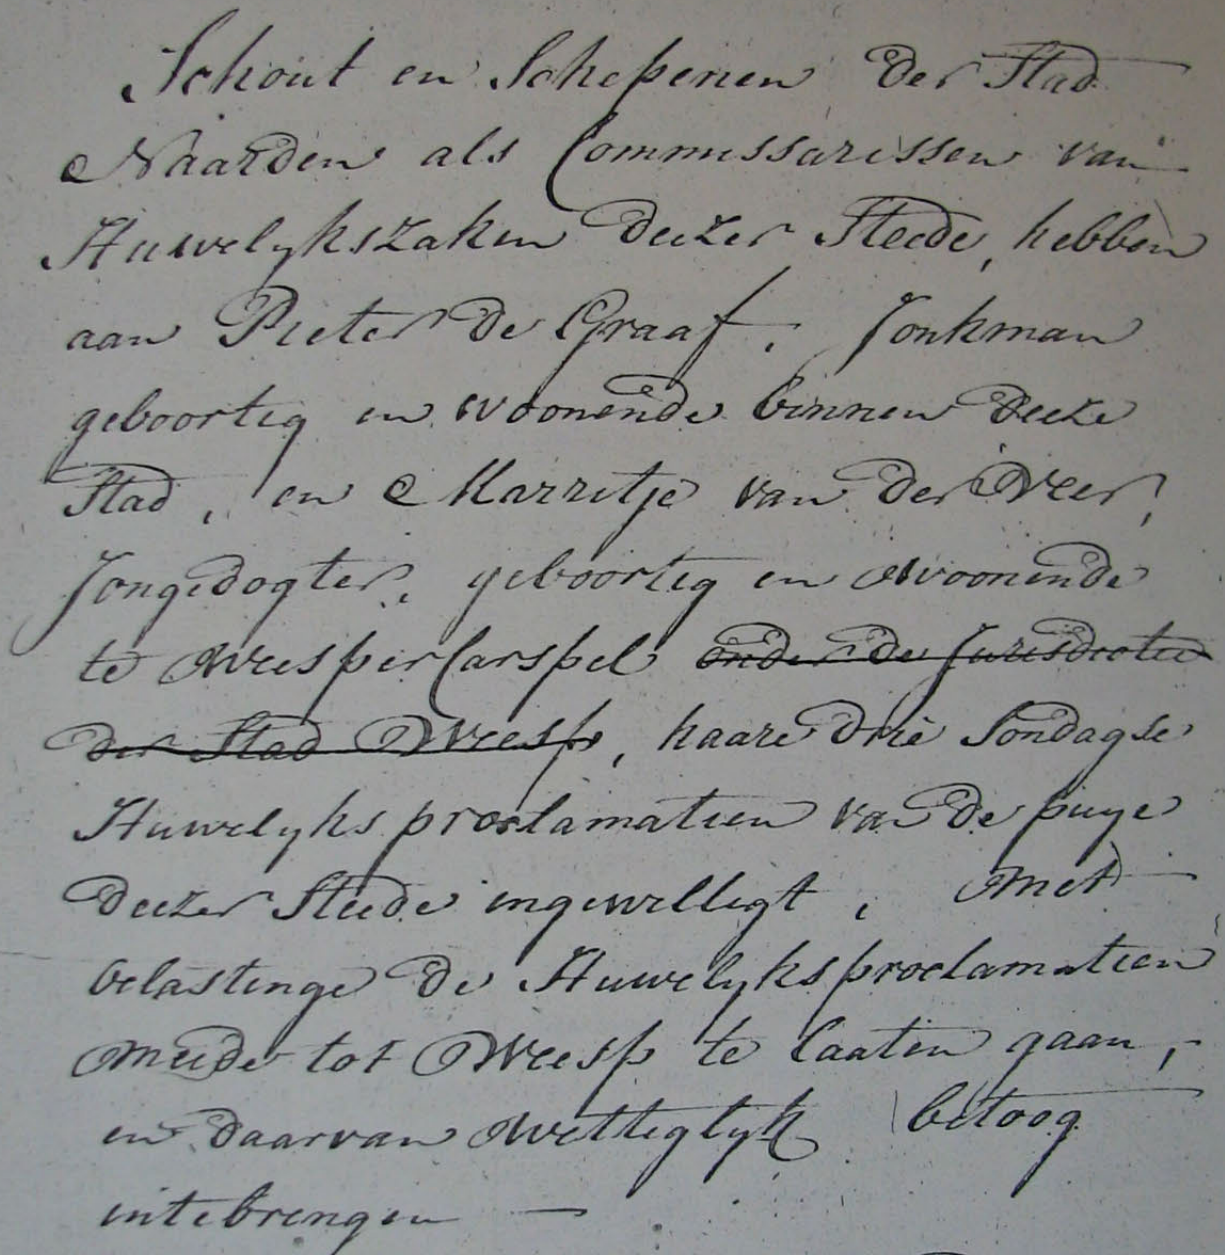 Schout en Schepenen der Stad
Naarden als Commissarissen van
Huwelykszaken deezer Steede, hebben
aan Pieter de Graaf, Jonkman
geboortig en woonende binnen deeze
Stad, en Marritje van der Veer,
Jongedogter, geboortig en woonende
te Weespercarspel onder de Jurisdictie
der Stad Weesp, haare drie Sondagse
Huwelyks proclamatien van de puye
deezer Steede ingewilligt, met
belastinge de Huwelyksproclamatien
meede tot Weesp te laaten gaan,
en daarvan wettiglyk betoog
intebrengen